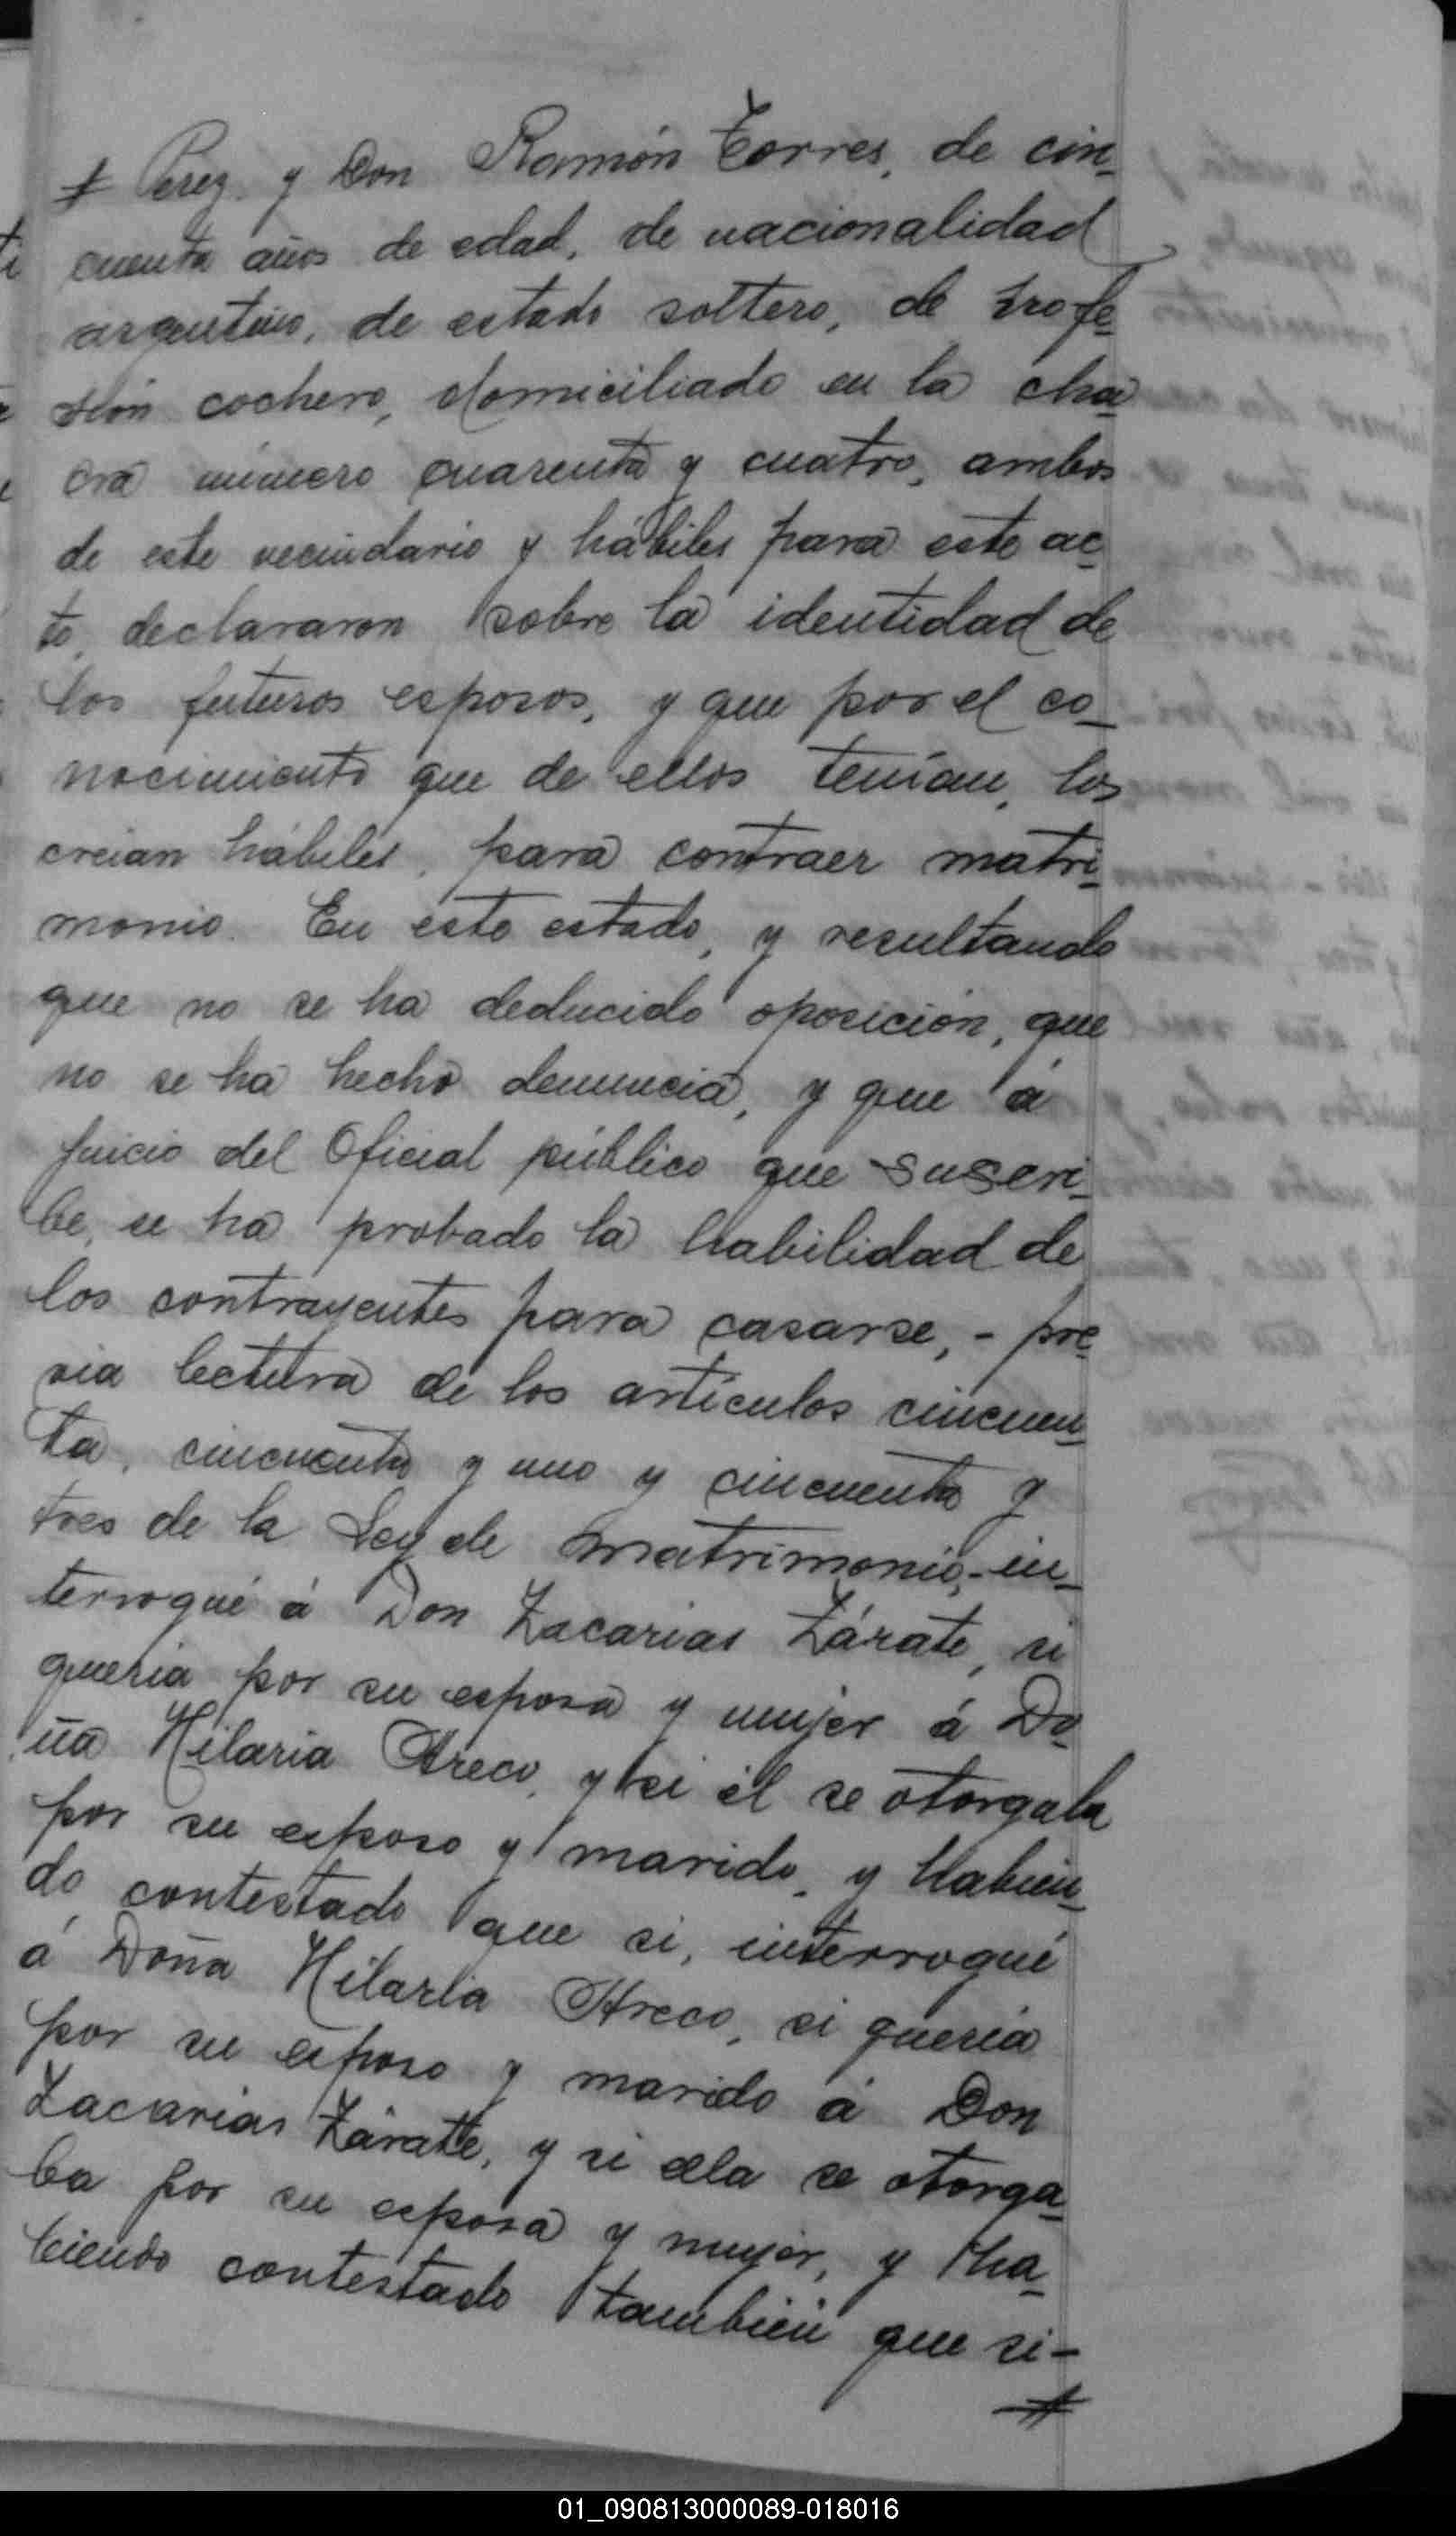 # Perez y Don Ramón Torres, de cin-
cuenta años de edad, de nacionalidad
argentino, de estado soltero, de profe-
sión cochero, domiciliado en la cha
cra número cuarenta y cuatro, ambos
de este vecindario y hábiles para este ac-
to, declararon sobre la identidad de
los futuros esposos, y que por el co-
nocimiento que de ellos tenían, los
creían hábiles, para contraer matri-
monio. En este estado, y resultando
que no se ha deducido oposición, que
no se ha hecho denuncia, y que á
juicio del Oficial público que suscri-
be, se ha probado la habilidad de
los contrayentes para casarse, - pre-
via lectura de los artículos cincuen-
ta, cincuenta y uno y cincuenta y
tres de la Ley de matrimonio, - in-
terrogué á Don Zacarias Zárate, si
queria por su esposa y mujer á Do-
ña Hilaria Areco, y si él se otorgaba
por su esposo y marido, y habien-
do contestado que si, interrogué
á Doña Hilaria Areco, si quería
por su esposo y marido á Don
Zacarias Zárate, y si ella se otorga-
ba por su esposa y mujer, y ha-
biendo contestado también que si -
#
01_090813000089-018016